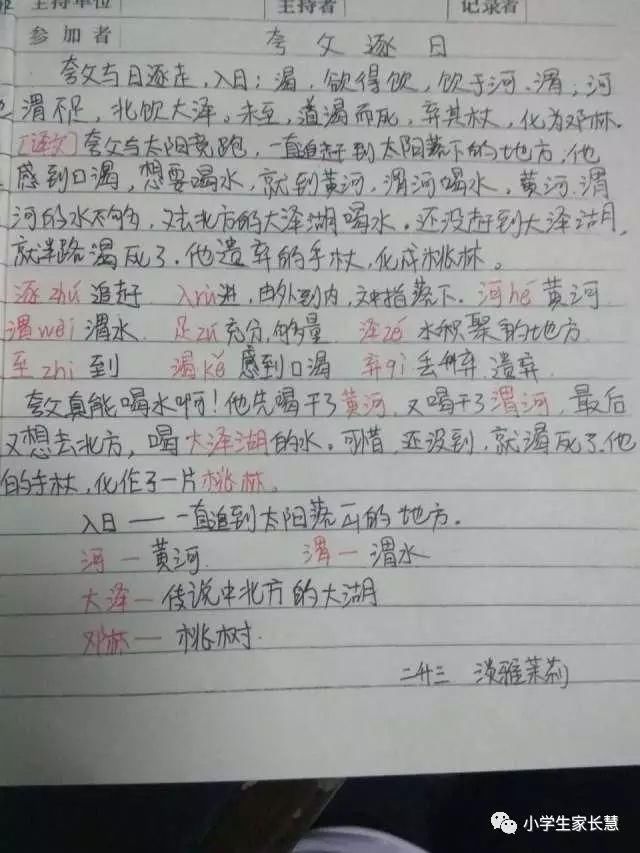 主持单位 主持者 记录者
参加者 夸父逐日
夸父与日逐走，入日；渴，欲得饮，饮于河、渭；河
渭不足，北饮大泽。未至，道渴而死，弃其杖，化为邓林。
[译文]夸父与太阳竞跑，一直追赶到太阳落下的地方，他
感到口渴，想要喝水，就到黄河，渭河喝水，黄河，渭
河的水不够，又去北方的大泽湖喝水。还没赶到大泽湖，
就半路渴死了。他遗弃的手杖，化成桃林。
逐zhú 追赶 入rù进，由外到内，文中指落下。河hé黄河
渭wèi 渭水 足zú 充分，够量 泽zé 水积聚的地方
至zhì到 渴kě 感到口渴 弃qì 丢弃 遗弃
夸父真能喝水啊！他先喝干了黄河，又喝干了渭河，最后
又想去北方，喝大泽湖的水。可惜，还没到，就渴死了。他
的手杖，化作了一片桃林。
入日——一直追到太阳落下的地方。
河—黄河 渭—渭水
大泽—传说中北方的大湖
邓林—桃树.
二廿三 淡雅茉莉
小学生家长慧